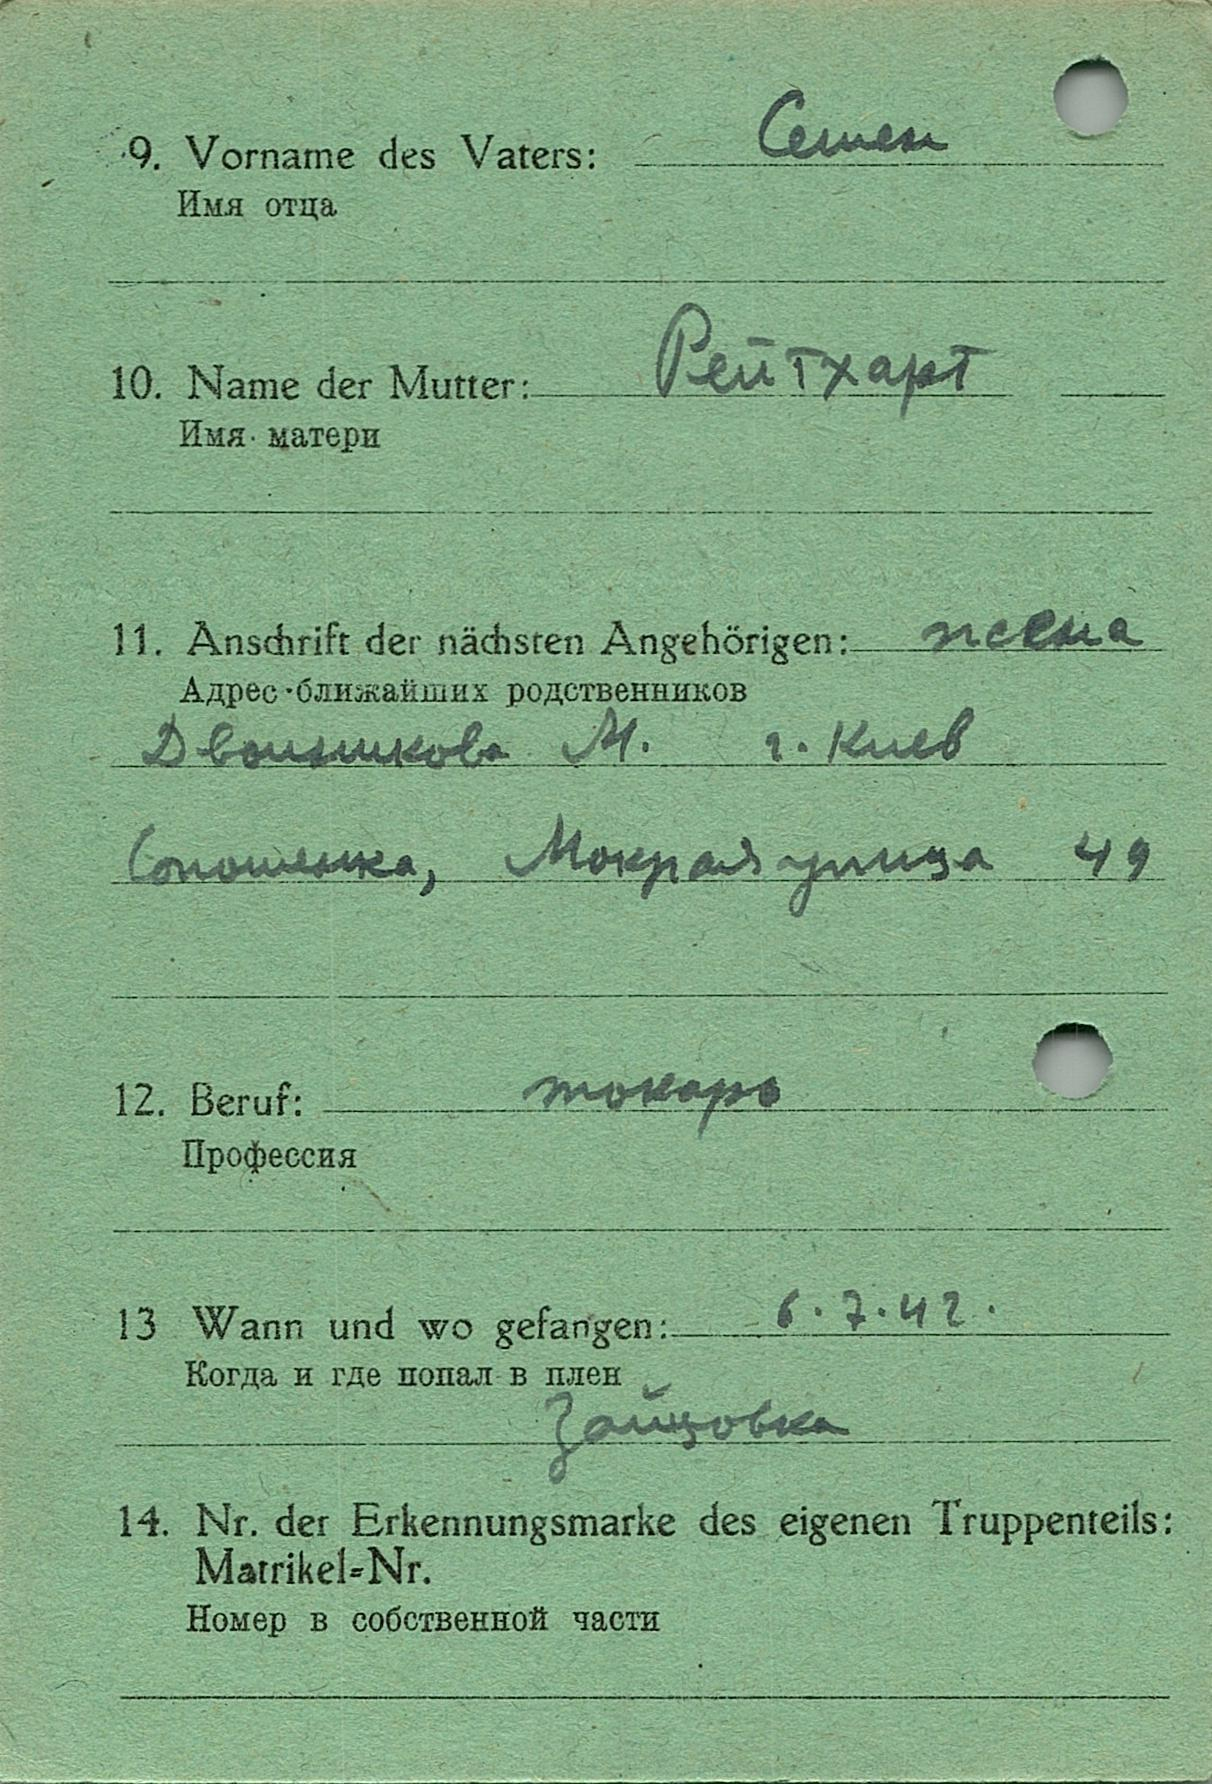 9. Vorname des Vaters: Семен
Имя отца
10. Name der Mutter: Рейтхарт
Имя матери
11. Anschrift der nächsten Angehörigen: жена
Адрес ближайших родственников
М. г. Киев
Мокрая улица 49
12. Beruf: токарь
Профессия
13 Wann und wo gefangen: 6.7.42.
Когда и где попал в плен
Зайцовка
14. Nr. der Erkennungsmarke des eigenen Truppenteils:
Matrikel=Nr.
Номер в собственной части